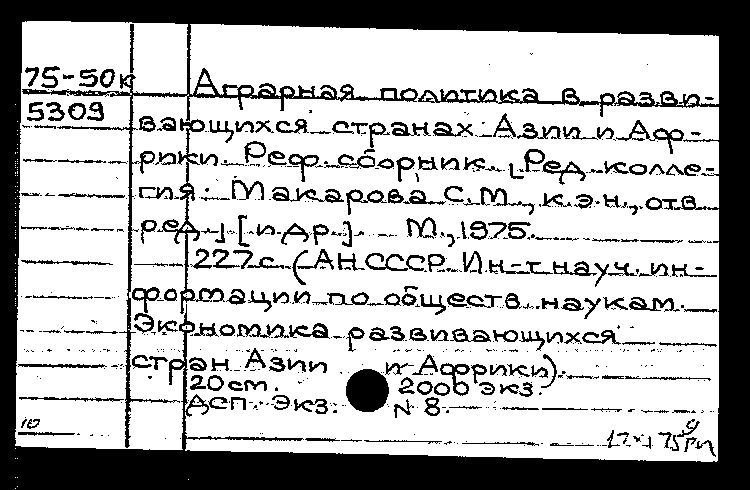 75-50к
5309
Аграрная политика в разви-
вающихся странах Азии и Аф-
рики. Реф. сборник. [Ред. колле-
гия: Макарова С.М., к.э.н., отв.
ред.] [и др.]. М., 1975.
227с. (АН СССР. Ин-т науч. ин-
формации по обществ. наукам.
Экономика развивающихся
стран Азии и Африки).
20 см. 2000 экз.
ДСП. Экз. N 8.